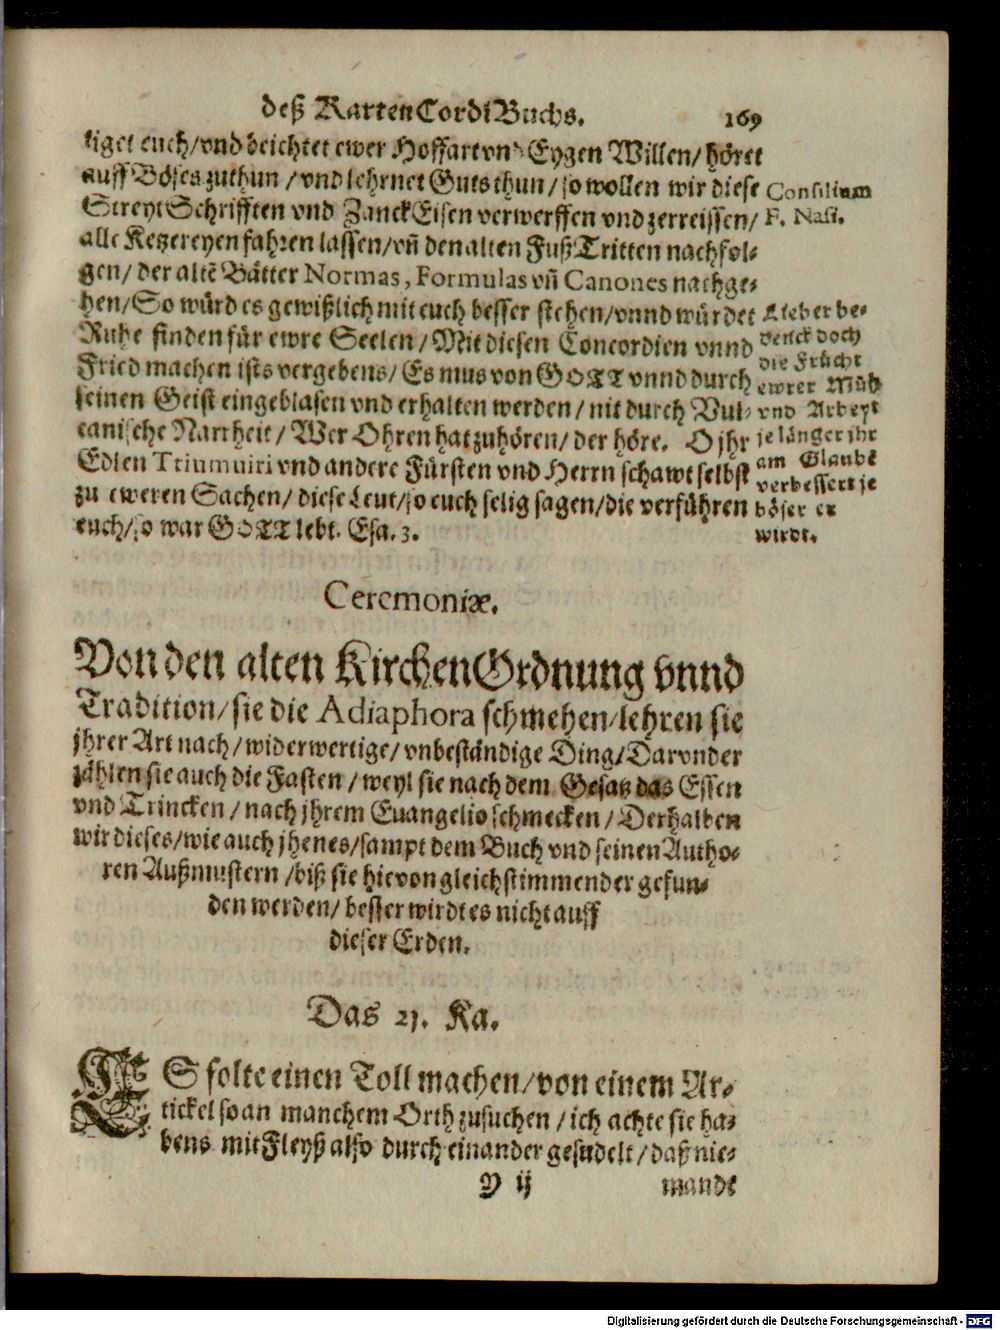 deß KartenCordiBuchs. 169
tiget euch/vnd beichtet ewer Hoffart vnd Eygen Willen/höret
auff Böses zuthun/vnd lehrnet Guts thun/so wollen wir diese
StreytSchrifften vnd ZanckEisen verwerffen vnd zerreissen/
alle Ketzereyen fahren lassen/vn̄ den alten FußTritten nachfol-
gen/der altē Vätter Normas, Formulas vn̄ Canones nachge-
hen/So würd es gewißlich mit euch besser stehen/vnnd würdet
Ruhe finden für ewre Seelen/Mit diesen Concordien vnnd
Fried machen ists vergebens/Es mus von GOTT vnnd durch
seinen Geist eingeblasen vnd erhalten werden/nit durch Vul-
canische Narrheit/Wer Ohren hat zuhören/der höre. O jhr
Edlen Triumuiri vnd andere Fürsten vnd Herrn schawt selbst
zu eweren Sachen/diese Leut/so euch selig sagen/die verführen
euch/so war GOTT lebt. Esa. 3.
Consilium
F. Nasi.
Lieber be-
denck doch
die Frücht
ewrer Müh
vnd Arbeyt
je länger jhr
am Glaubē
verbessert je
böser er
wirdt.
Ceremoniæ.
Von den alten KirchenOrdnung vnnd
Tradition/sie die Adiaphora schmehen/lehren sie
jhrer Art nach/widerwertige/vnbeständige Ding/Darvnder
zählen sie auch die Fasten/weyl sie nach dem Gesatz das Essen
vnd Trincken/nach jhrem Euangelio schmecken/Derhalben
wir dieses/wie auch jhenes/sampt dem Buch vnd seinen Autho-
ren Außmustern/biß sie hievon gleichstimmender gefun-
den werden/besser wirdt es nicht auff
dieser Erden.
Das 21. Ka.
ES solte einen Toll machen/von einem Ar-
tickel so an manchem Orth zusuchen/ich achte sie ha-
bens mit Fleyß also durch einander gesudelt/daß nie-
Y ij mandt
Digitalisierung gefördert durch die Deutsche Forschungsgemeinschaft - DFG